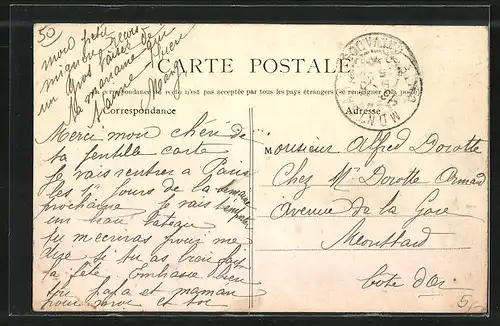 50
mon petit
mignon
un gros baiser de
ta maname qui
t'aime bien
Marg
CARTE POSTALE
La correspondance au recto n'est pas acceptée par tous les pays étrangers (se renseigner à la poste)
Correspondance
Adresse
Merci mon chéri de
ta gentille carte
Je vais rentrer a Paris
les 1er jours de la semaine
prochaine Je vais t'
un bateau
tu m'ecriras pour me
dire si tu as bien fait
la fête. Embrasse bien
ton papa et maman
pour moi et toi
Monsieur Alfred Dorotte
Chez Mr Dorotte Armand
Avenue de la Gare
Montbard
Cote d'Or